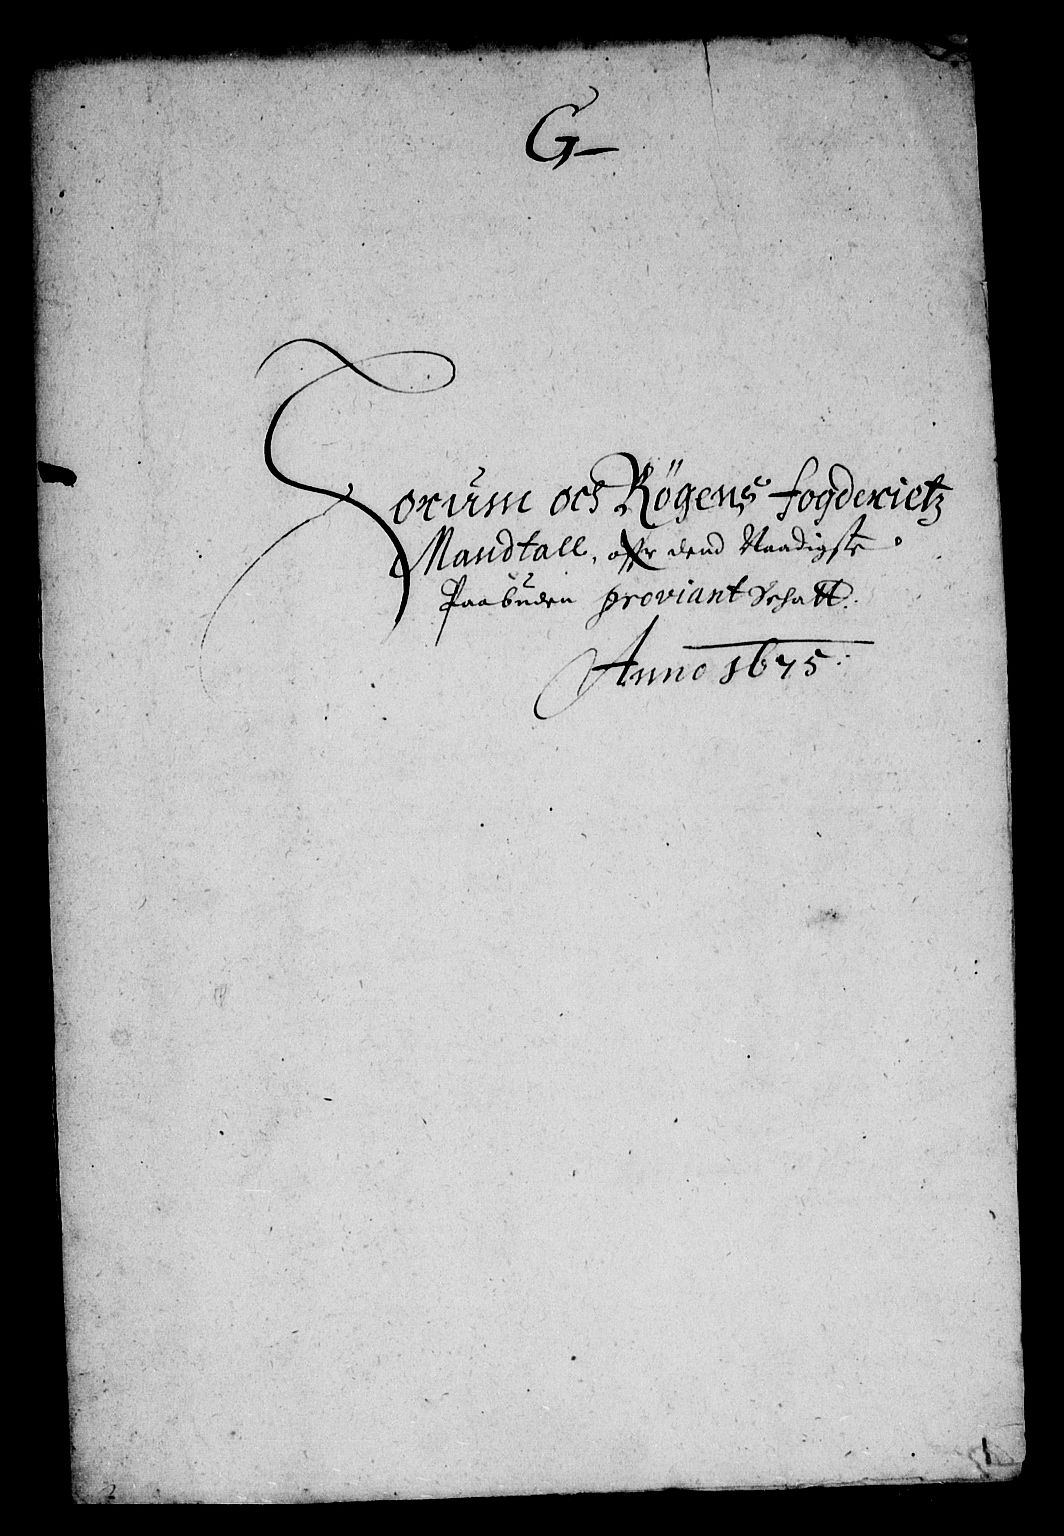 G
Sorum och Rögens fogderietz
Mandtall, offr dend Naadigste
Paabuden proviant Schatt.
Anno 1675.